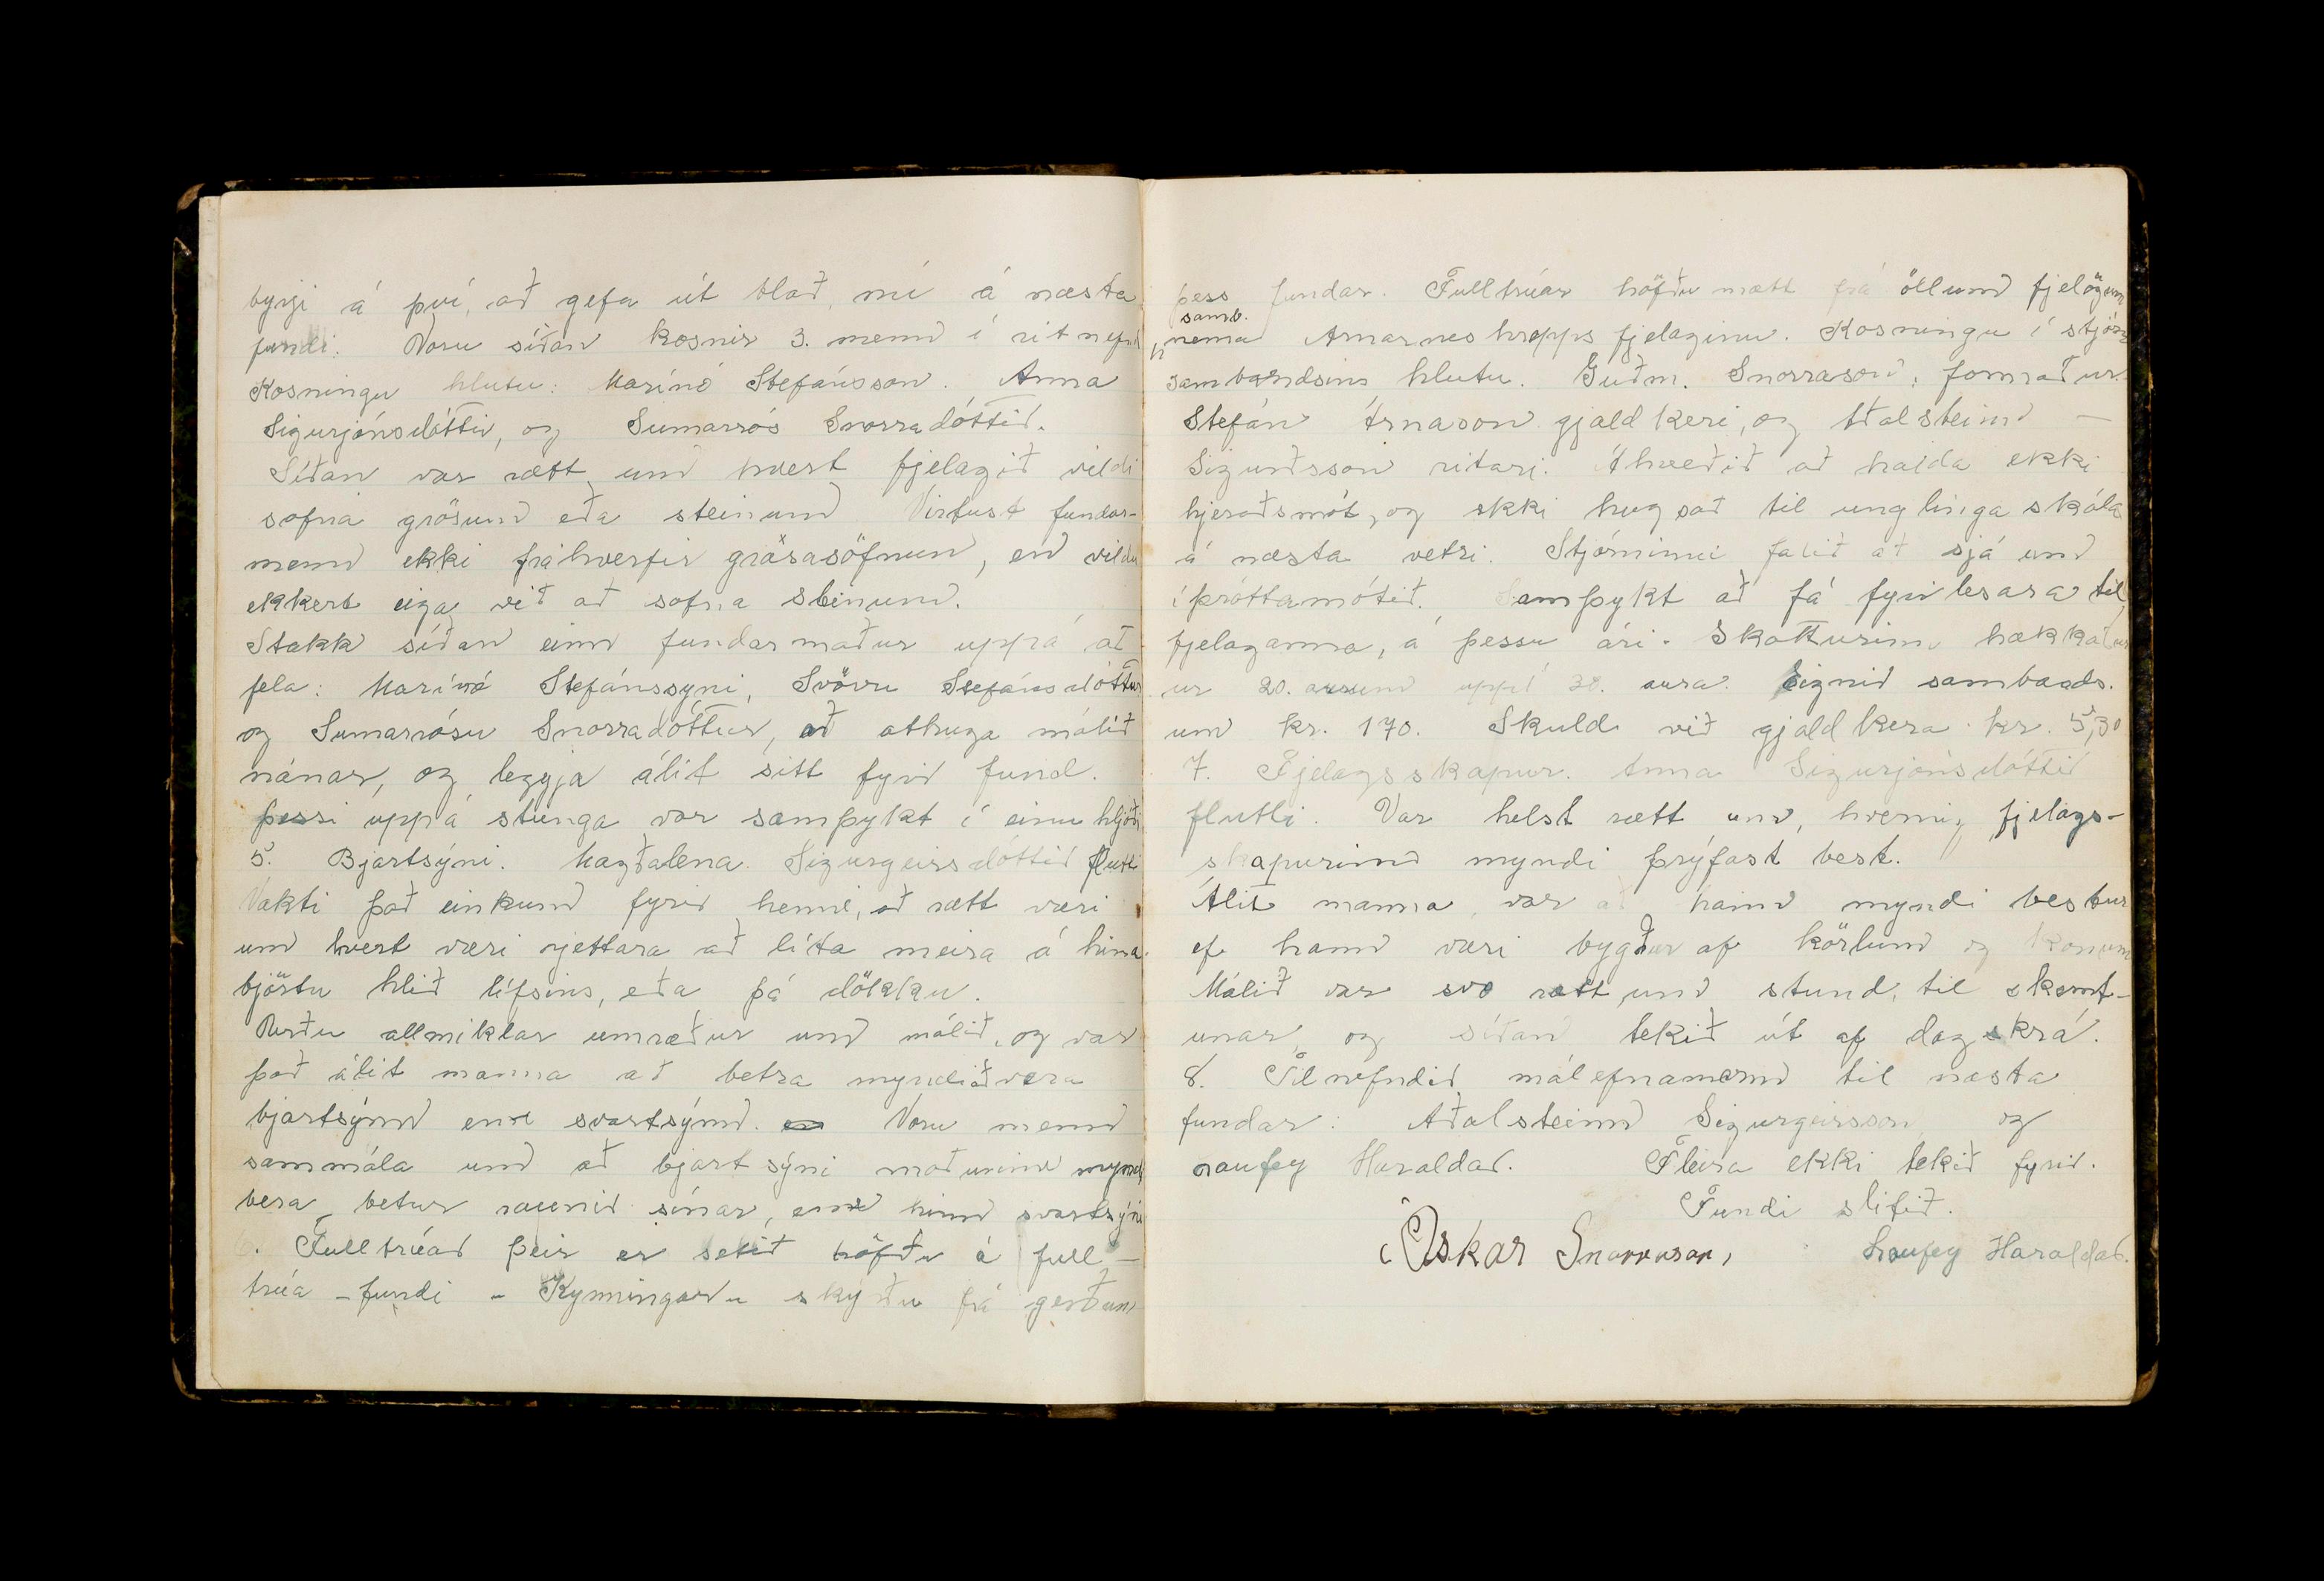 byrji á því, að gefa út blað, nú á næsta
fundi. Voru síðan kosnir 3. menn í ritnefnd
Kosningu hlutu: Marínó Stefánsson. Anna
Sigurjónsdóttir, og Sumarrós Snorradóttir.
Síðan var rætt um hvert fjelagið vildi
safna grösum eða steinum Virtust fundar-
menn ekki fráhverfir grasasöfnun, en vildu
ekkert eiga við að safna steinum.
Stakk síðan einn fundarmaður uppá að
fela: Marínó Stefánssyni, Svövu Stefánsdóttur
og Sumarrósu Snorradóttur, að athuga málið
nánar, og leggja álit sitt fyrir fund.
Þessi uppá stunga var samþykt í einu hljóði
5. Bjartsýni. Magðalena Sigurgeirsdóttir flutti
Vakti það einkum fyrir henni, að rætt væri
um hvert væri rjettara að líta meira á hina
björtu hlið lífsins, eða þá dökku.
Urðu allmiklar umræður um málið, og var
það álit manna að betra myndi að vera
bjartsýnn enn svartsýnn. Voru menn
sammála um að bjartsýni maðurinn myndi
bera betur raunir sínar, enn hinn svartsýni
6. Fulltrúar þeir er setið höfðu á full-
trúa-fundi - Kynningar skýrðu frá gerðum
þess fundar. Fulltrúar höfðu mætt frá öllum fjelögum
samb.
nema Arnarneshrepps fjelaginu. Kosningu í stjórn
sambandsins hlutu. Guðm. Snorrason, formaður.
Stefán Árnason gjaldkeri, og Aðalsteinn –
Sigurðsson ritari. Ákveðið að halda ekki
hjeraðsmót, og ekki hugsað til unglinga skóla
á næsta vetri. Stjórninni falið að sjá um
íþróttamótið. Samþykt að fá fyrirlesara til
fjelaganna, á þessu ári. Skatturinn hækkaður
úr 20. aurum uppí 30. aura. Eignir sambands.
um kr. 170. Skuld við gjaldkera kr. 5,30
7. Fjelagsskapur. Anna Sigurjónsdóttir
flutti. Var helst rætt um, hvernig fjelags-
skapurinn myndi þrýfast best.
Álit manna var að hann myndi bestur
ef hann væri bygður af körlum og konum
Málið var svo rætt um stund, til skemt-
unar, og síðan tekið út af dagskrá.
8. Tilnefndir málefnamenn til næsta
fundar: Aðalsteinn Sigurgeirsson, og
Laufey Haraldad. Fleira ekki tekið fyrir.
Fundi slitið.
Óskar Snorrason, Laufey Haraldad.